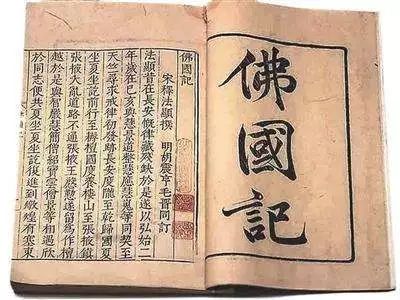 佛國記
佛國記
宋釋法顯撰
明胡震亨毛晉同訂
法顯昔在長安慨律藏殘缺於是遂以弘始二
年歲在己亥與慧景道整慧應慧嵬等同契至
天竺尋求戒律初發跡長安度隴至乾歸國夏
坐夏坐訖前行至耨檀國度養樓山至張掖鎮
張掖大亂道路不通張掖王慇懃遂留為作檀
越於是與智嚴慧簡僧紹寶雲僧景等相遇欣
於同志便共夏坐夏坐訖復進到燉煌有塞東